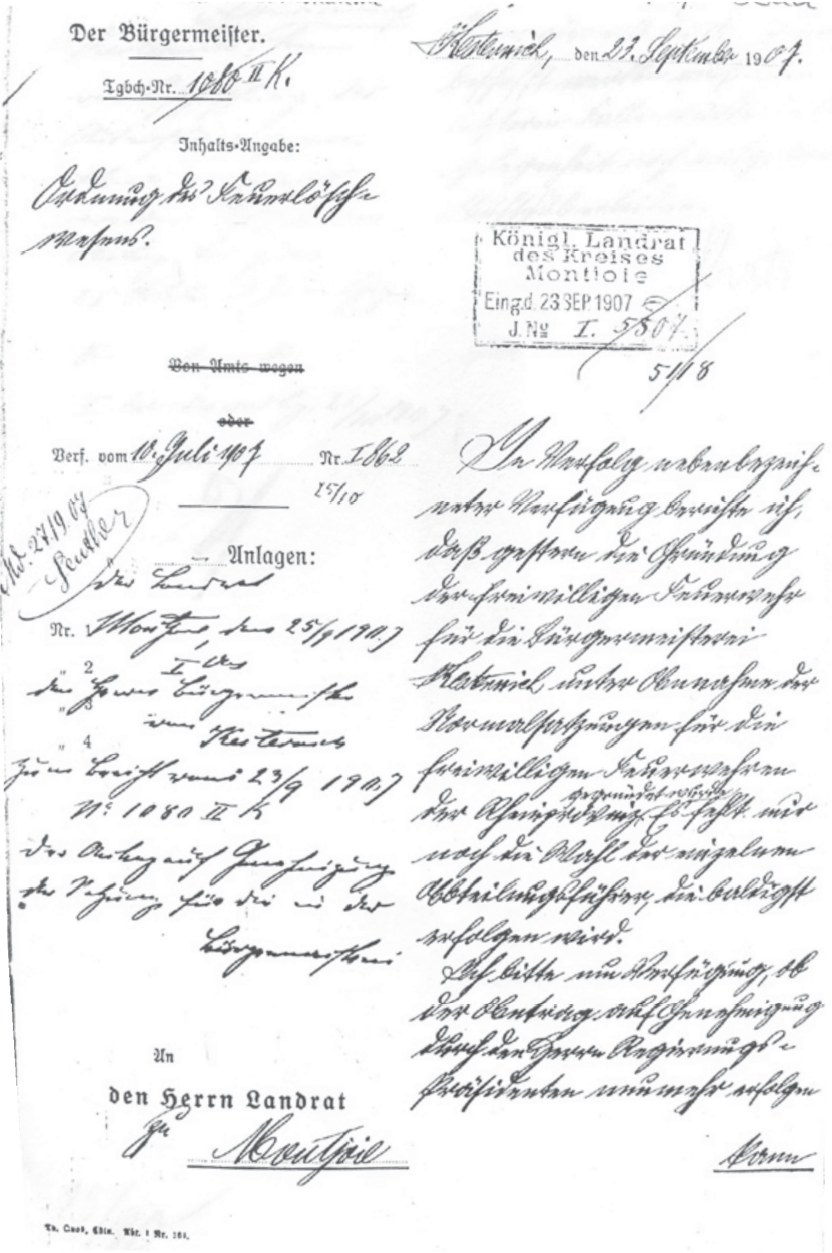 Der Bürgermeister.
Tgbch-Nr. 1080 II K.
Kesternich, den 23. September 1907.
Inhalts-Angabe:
Ordnung des Feuerlösch-
wesens.
Königl. Landrat
des Kreises
Montjoie
Eing.d. 23 SEP 1907
J. No I. 5807.
51/18
Von Amts wegen
oder
Verf. vom 10. Juli 1907 Nr. I 862
25/10
Anlagen:
der Landrat
Nr. 1 Montjoie, den 25/9 1907
„ 2 I
den Herrn Bürgermeister
„ 3
„ 4 Kesternich
zum Bericht vom 23/9 1907
No 1080 II K
Der Antrag auf Genehmigung
der Satzung für die in der
Bürgermeisterei
An
den Herrn Landrat
zu Montjoie
In Verfolg nebenbezeich-
neter Verfügung berichte ich,
daß gestern die Gründung
der freiwilligen Feuerwehr
für die Bürgermeisterei
Kesternich unter Annahme der
Normalsatzungen für die
freiwilligen Feuerwehren
der Rheinprovinz gegründet wurde. Es fehlt nur
noch die Wahl der einzelnen
Abteilungsführer, die baldigst
erfolgen wird.
Ich bitte um Verfügung, ob
der Antrag auf Genehmigung
durch den Herrn Regierungs-
Präsidenten nunmehr erfolgen
kann